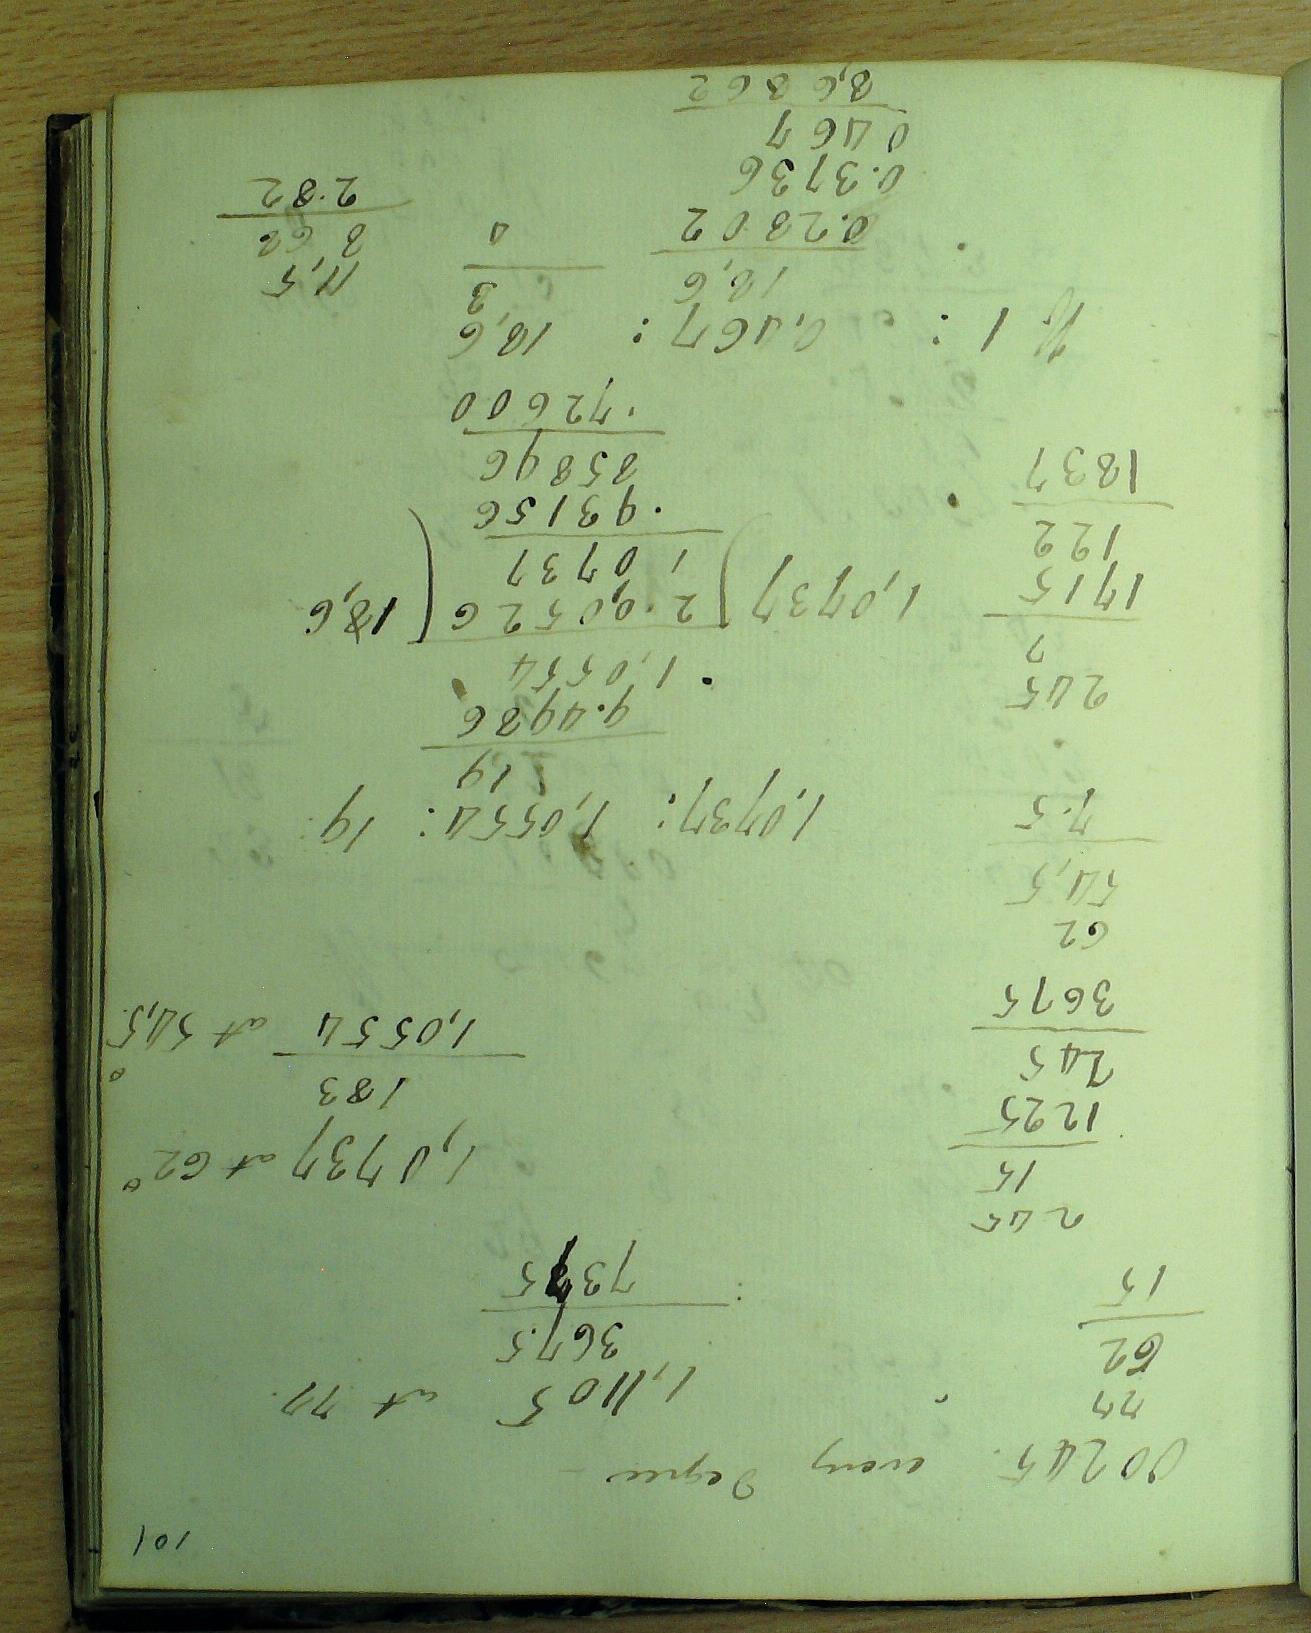 101
00245 every Degree –
77 1,1105 at 77
62 367.5
15 7375
245
15 1,0737 at 62°
1225 183
245 1,0554 at 54,5°
3675
62
54,5
7.5 1,0737: 1,0554: 19:
19
245 9.4986
7 1,0554
1715 1,0737) 2.0,0526 (18,6
122 1,0737
1837 .93156
85896
.72600
1: 0,467: 18,6
18,6 3 11,5
0.2802 4 8 68
0.3736 2.82
0 467
8,6862